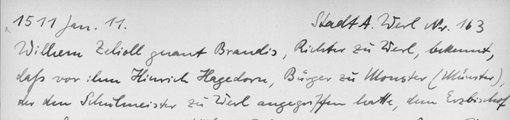 1511 Jan. 11. Stadt A. Werl Nr. 163
Wilhelm Zelioll gnant Brandis, Richter zu Werl, bekennt,
daß vor ihm Hinrich Hagedorn, Bürger zu Monster (Münster),
der den Schulmeister zu Werl angegriffen hatte, dem Erzbischof